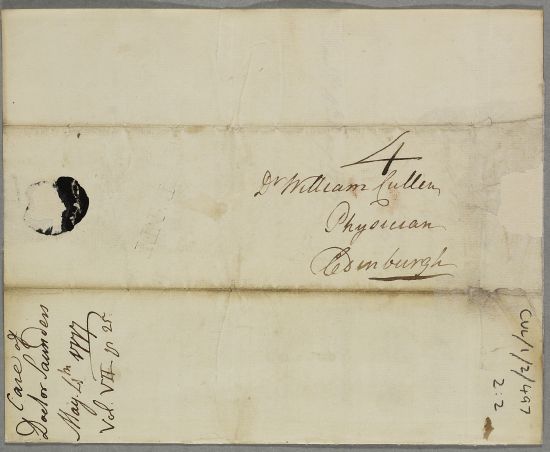 4
Dr William Cullen
Physician
Edinburgh
Case of
Doctor Saunders
May 4th 1777
Vol. VII p. 25
CUL/1/2/497
2:2